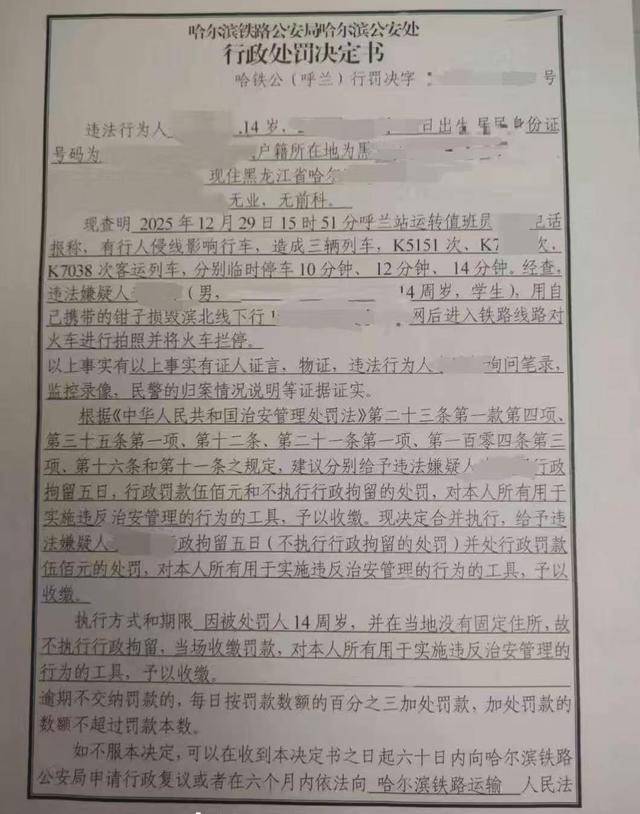 哈尔滨铁路公安局哈尔滨公安处
行政处罚决定书
哈铁公（呼兰）行罚决字 号
违法行为人 ,14岁, 日出生 居民身份证
号码为 ,户籍所在地为黑
现住黑龙江省哈尔
无业，无前科。
现查明 2025年12月29日15时51分呼兰站运转值班员 电话
报称，有行人侵线影响行车，造成三辆列车，K5151次、K7 次、
K7038次客运列车，分别临时停车10分钟、12分钟、14分钟。经查，
违法嫌疑人 （男， 14周岁，学生），用自
己携带的钳子损毁滨北线下行 网后进入铁路线路对
火车进行拍照并将火车拦停。
以上事实有以上事实有证人证言，物证，违法行为人 询问笔录，
监控录像，民警的归案情况说明等证据证实。
根据《中华人民共和国治安管理处罚法》第二十三条第一款第四项、
第三十五条第一项、第十二条、第二十一条第一项、第一百零四条第三
项、第十六条和第十一条之规定，建议分别给予违法嫌疑人 行政
拘留五日，行政罚款伍佰元和不执行行政拘留的处罚，对本人所有用于
实施违反治安管理的行为的工具，予以收缴。现决定合并执行，给予违
法嫌疑人 政拘留五日（不执行行政拘留的处罚）并处行政罚款
伍佰元的处罚，对本人所有用于实施违反治安管理的行为的工具，予以
收缴。
执行方式和期限 因被处罚人14周岁，并在当地没有固定住所，故
不执行行政拘留，当场收缴罚款，对本人所有用于实施违反治安管理的
行为的工具，予以收缴。
逾期不交纳罚款的，每日按罚款数额的百分之三加处罚款，加处罚款的
数额不超过罚款本数。
如不服本决定，可以在收到本决定书之日起六十日内向哈尔滨铁路
公安局申请行政复议或者在六个月内依法向 哈尔滨铁路运输 人民法